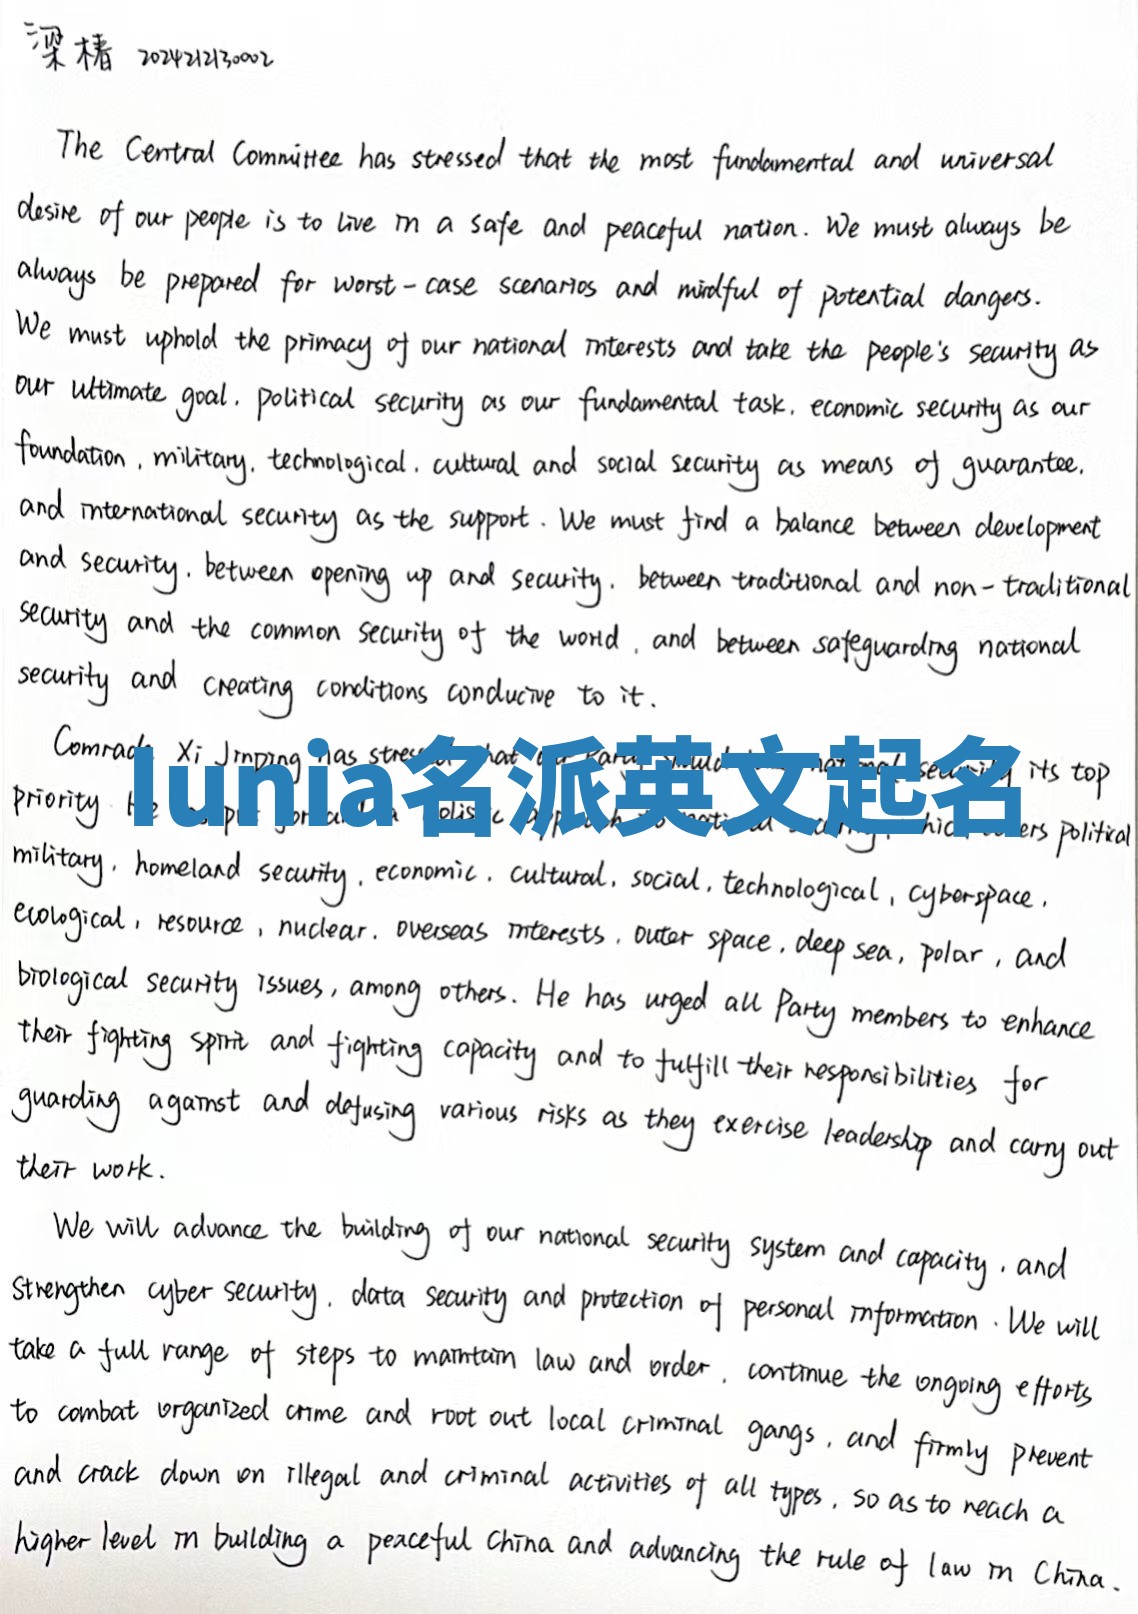 梁椿 2024212130002
The Central Committee has stressed that the most fundamental and universal
desire of our people is to live in a safe and peaceful nation. We must always be
always be prepared for worst-case scenarios and mindful of potential dangers.
We must uphold the primacy of our national interests and take the people's security as
our ultimate goal, political security as our fundamental task, economic security as our
foundation, military, technological, cultural and social security as means of guarantee,
and international security as the support. We must find a balance between development
and security, between opening up and security, between traditional and non-traditional
security and the common security of the world, and between safeguarding national
security and creating conditions conducive to it.
Comrade Xi Jinping has stressed that our Party should national security its top
lunia名派英文起名
priority. He a holistic approach to national security, which covers political
military, homeland security, economic, cultural, social, technological, cyberspace,
ecological, resource, nuclear, overseas interests, outer space, deep sea, polar, and
biological security issues, among others. He has urged all Party members to enhance
their fighting spirit and fighting capacity and to fulfill their responsibilities for
guarding against and defusing various risks as they exercise leadership and carry out
their work.
We will advance the building of our national security system and capacity, and
strengthen cyber security, data security and protection of personal information. We will
take a full range of steps to maintain law and order, continue the ongoing efforts
to combat organized crime and root out local criminal gangs, and firmly prevent
and crack down on illegal and criminal activities of all types, so as to reach a
higher level in building a peaceful China and advancing the rule of law in China.